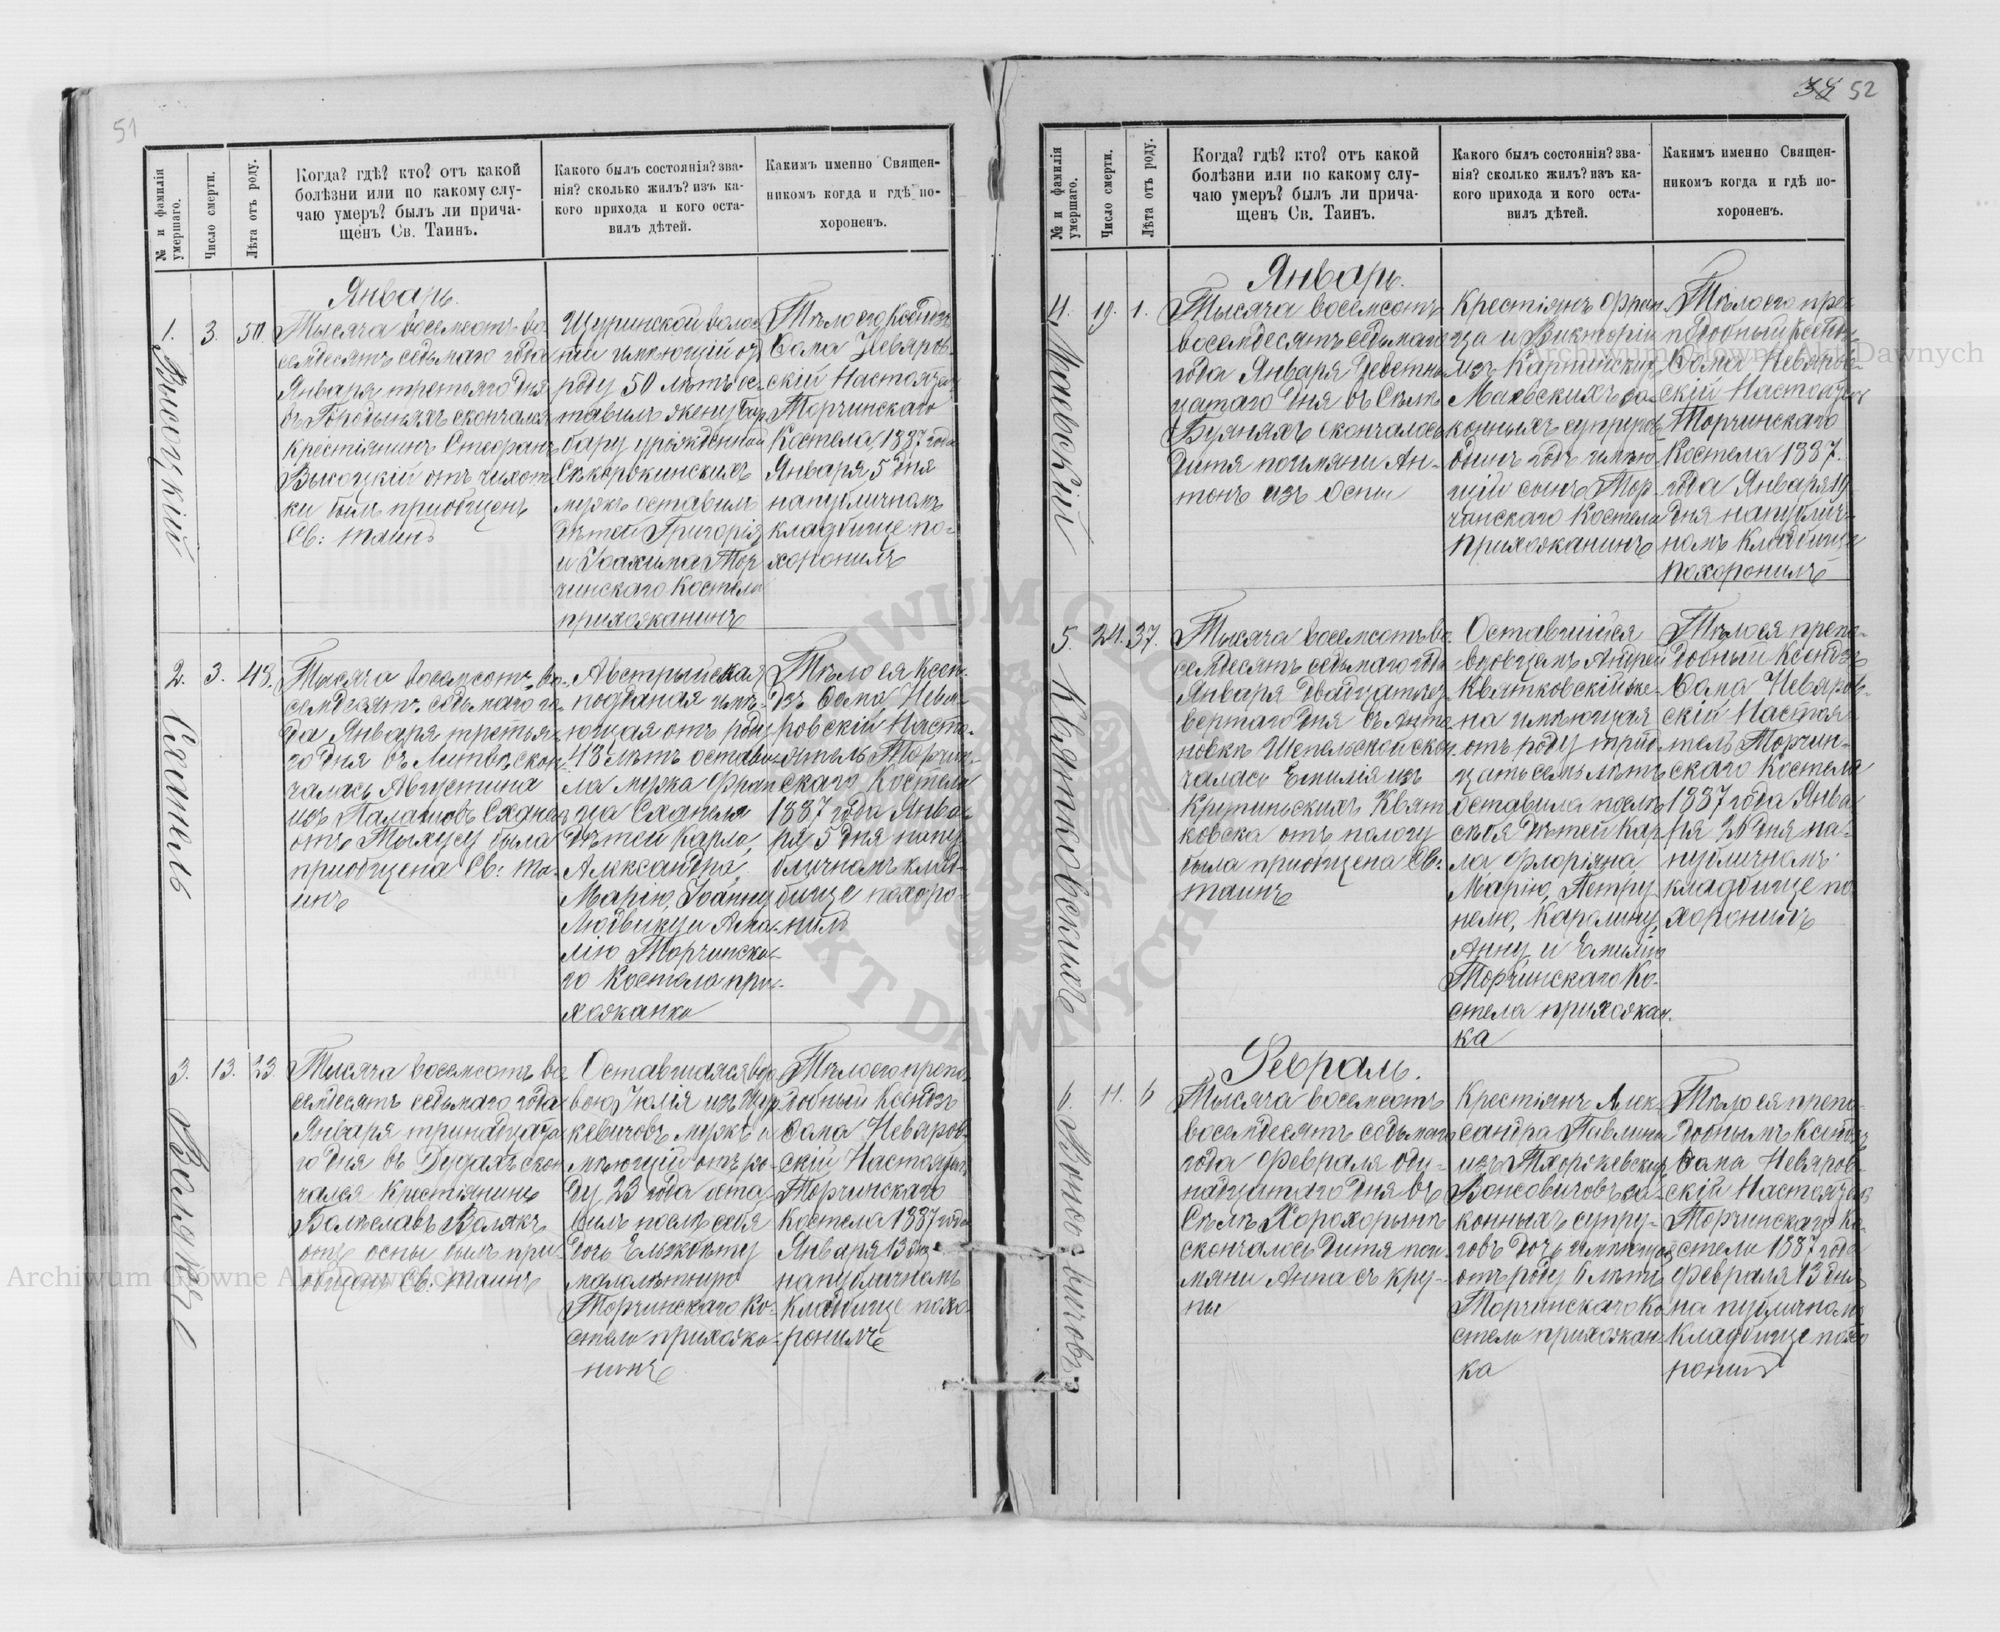 51
№ и фамилія умершаго.
Число смерти.
Лѣта отъ роду.
Когда? гдѣ? кто? отъ какой
болѣзни или по какому слу-
чаю умеръ? былъ ли прича-
щенъ Св. Таинъ.
Какого былъ состоянія? зва-
нія? сколько жилъ? изъ ка-
кого прихода и кого оста-
вилъ дѣтей.
Какимъ именно Священ-
никомъ когда и гдѣ по-
хороненъ.
Январь.
1.
Высоцкій
3.
50.
Тысяча восемсотъ во-
семдесятъ седьмаго года
Января третьяго дня
скончался
крестіянинъ Стефанъ
Высоцкій отъ чихот
ки былъ приобщенъ
Св: таинъ
Щуринской волос
ти имѣющій отъ
роду 50 лѣтъ ос-
тавилъ жену Вар
вару урожденная
мужъ оставилъ
дѣтей Григорія
и Іоахима Тор
чинскаго Костела
прихожанинъ
Тѣло его Ксендзъ
Ѳома Невяров-
скій Настоятель
Торчинскаго
Костела 1887 года
Января 5 дня
на публичномъ
кладбище по-
хоронилъ
2.
3.
48.
Тысяча восемсотъ во-
семдесятъ седьмаго го
да Января третья
го дня въ скон
чалась Августина
изъ
отъ Тыфусу была
приобщена Св: Та-
инъ
Австрыйская
подданая имѣ-
ющая отъ роду
48 лѣтъ остави-
ла мужа Фран
ца
дѣтей Карла,
Александра,
Марію, Іоанну
Людвику и Ама-
лію Торчинска-
го Костела при-
хожанка
Тѣло ея Ксен-
дзъ Ѳома Невя-
ровскій Насто-
ятель Торчин-
скаго Костела
1887 года Янва-
ря 5 дня на пу
бличномъ клад-
бище похоро-
нилъ
3.
13.
23.
Тысяча восемсотъ во
семдесятъ седьмаго года
Января тринадцата
го дня въ Дудахъ скон
чался Крестіянинъ
Болеславъ Волякъ
отъ оспы былъ при
общенъ Св: таинъ
Оставшаяся вдо
вою Юлія изъ
кевичовъ мужъ и
мѣющій отъ ро-
ду 23 года оста-
вилъ послѣ себя
дочь Ельжбету
малолѣтную
Торчинскаго Ко-
стела прихожа-
нинъ
Тѣло его препо-
добный Ксендзъ
Ѳома Невяров-
скій Настоятель
Торчинскаго
Костела 1887 года
Января 13 дня
на публичномъ
Кладбище похо-
ронилъ
52
№ и фамилія умершаго.
Число смерти.
Лѣта отъ роду.
Когда? гдѣ? кто? отъ какой
болѣзни или по какому слу-
чаю умеръ? былъ ли прича-
щенъ Св. Таинъ.
Какого былъ состоянія? зва-
нія? сколько жилъ? изъ ка-
кого прихода и кого оста-
вилъ дѣтей.
Какимъ именно Священ-
никомъ когда и гдѣ по-
хороненъ.
Январь.
4.
Маевскій
19.
1.
Тысяча восемсотъ
восемдесятъ седьмаго
года Января девятна
цатаго дня въ Селѣ
Буяняхъ скончалось
дитя по имяни Ан-
тонъ изъ оспы
Крестіянъ Фран
ца и Викторіи
изъ Карпинскихъ
Маевскихъ за-
конныхъ супруговъ
одинъ годъ имѣю
щій сынъ Тор-
чинскаго Костела
прихожанинъ
Тѣло его пре-
подобный Ксендзъ
Ѳома Невяров-
скій Настоятель
Торчинскаго
Костела 1887.
года Января 19
дня на публич-
номъ кладбище
похоронилъ
5.
Квятковскихъ
24.
37.
Тысяча восемсотъ во-
семдесятъ седьмаго года
Января двадцать че
вертаго дня въ Анто
новкѣ Шепельской скон
чалась Емилія изъ
Крупинскихъ Квят
ковска отъ пологу
была приобщена Св:
таинъ
Оставшійся
вдовцемъ Андрей
Квятковскій же-
на имѣющая
отъ роду трид
цать семь лѣтъ
оставила послѣ
себя дѣтей Кар
ла Флоріяна
Марію, Петру
нелю, Каролину,
Анну и Емилію
Торчинскаго Ко-
стела прихожан-
ка
Тѣло ея препо-
добный Ксендзъ
Ѳома Невяров-
скій Настоя-
тель Торчин-
скаго Костела
1887 года Янва
ря 26 дня на
публичномъ
кладбище по
хоронилъ
Февраль.
6.
Вонсовичовъ
11.
6
Тысяча восемсотъ
восемдесятъ седьмаго
года Февраля оди-
надцатаго дня въ
Селѣ Хорохорынѣ
скончалось дитя по и
мяни Анна съ кру-
пы
Крестіянъ Алек-
сандра Павлины
изъ
Вонсовичовъ за-
конныхъ супру-
говъ дочь имѣющая
отъ роду 6 лѣтъ
Торчинскаго Ко
стела прихожан-
ка
Тѣло ея препо-
добнымъ Ксендзъ
Ѳома Невяров-
скій Настоятель
Торчинскаго Ко-
стела 1887 года
Февраля 13 дня
на публичномъ
Кладбище похо
ронилъ
Archiwum Główne Akt Dawnych
Archiwum Główne Akt Dawnych
ARCHIWUM GŁÓWNE AKT DAWNYCH